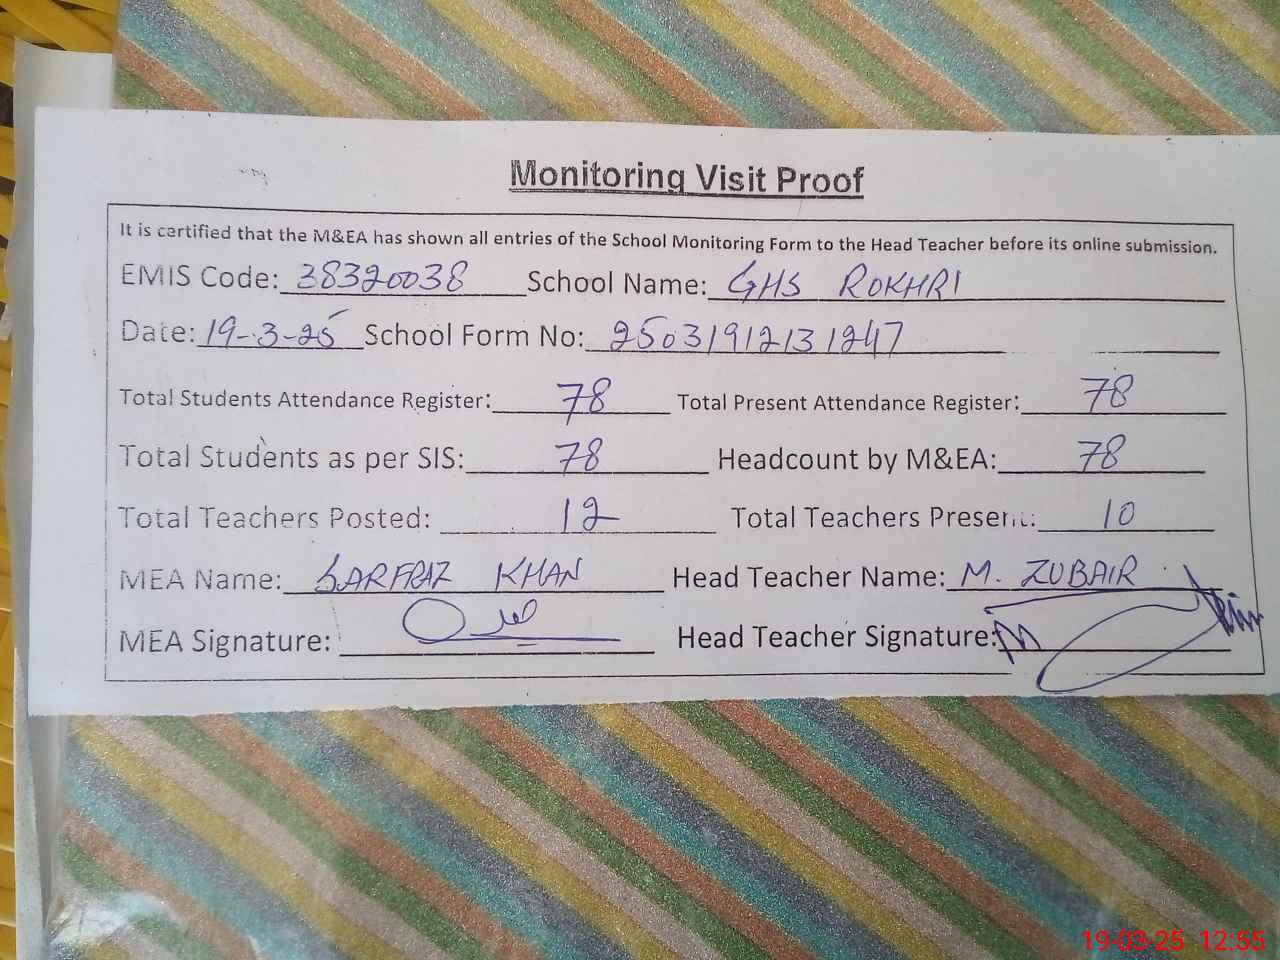 Monitoring Visit Proof
It is certified that the M&EA has shown all entries of the School Monitoring Form to the Head Teacher before its online submission.
EMIS Code: 38320038 School Name: GHS ROKHRI
Date: 19-3-25 School Form No: 25031912131247
Total Students Attendance Register: 78 Total Present Attendance Register: 78
Total Students as per SIS: 78 Headcount by M&EA: 78
Total Teachers Posted: 12 Total Teachers Present: 10
MEA Name: SARFRAZ KHAN Head Teacher Name: M. ZUBAIR
MEA Signature: Head Teacher Signature:
19-03-25 12:55